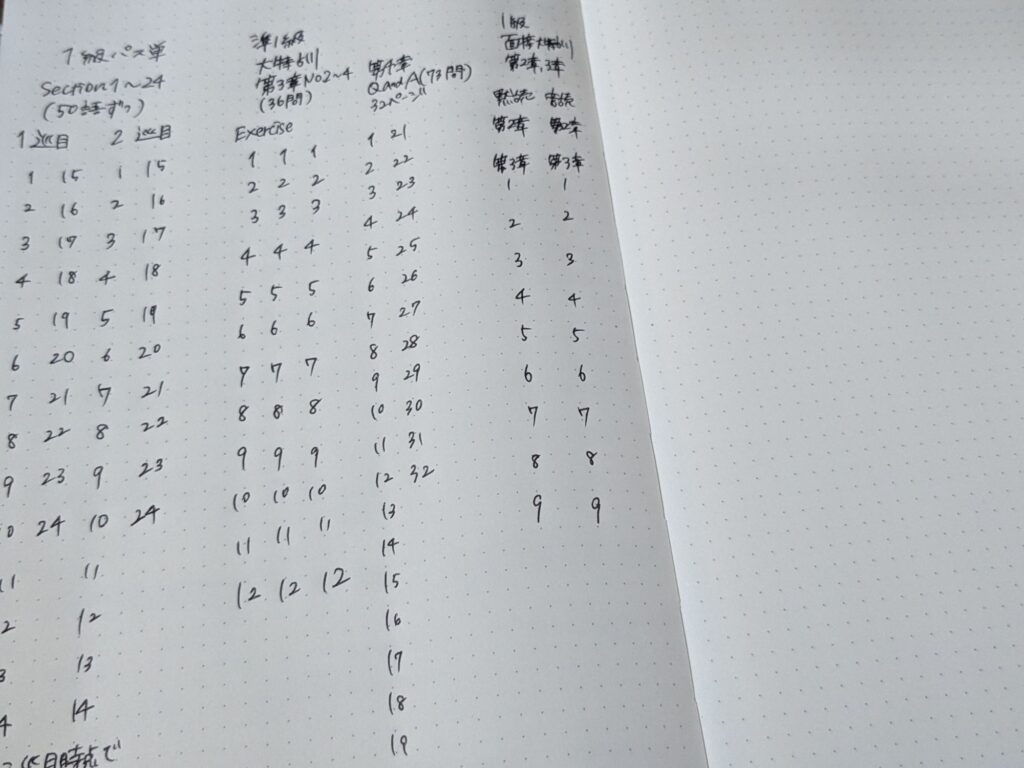 1級パス単
Section1〜24
(50語ずつ)
1巡目 2巡目
1 15 1 15
2 16 2 16
3 17 3 17
4 18 4 18
5 19 5 19
6 20 6 20
7 21 7 21
8 22 8 22
9 23 9 23
10 24 10 24
11 11
2 12
3 13
4 14
巡目時点で
準1級
大特訓
第3章No2〜4
(36問)
Exercise
1 1 1
2 2 2
3 3 3
4 4 4
5 5 5
6 6 6
7 7 7
8 8 8
9 9 9
10 10 10
11 11 11
12 12 12
第4章
QandA(73問)
32ページ
1 21
2 22
3 23
4 24
5 25
6 26
7 27
8 28
9 29
10 30
11 31
12 32
13
14
15
16
17
18
19
1級
面接大特訓
第2章,3章
黙読 音読
第2章 第2章
第3章 第3章
1 1
2 2
3 3
4 4
5 5
6 6
7 7
8 8
9 9